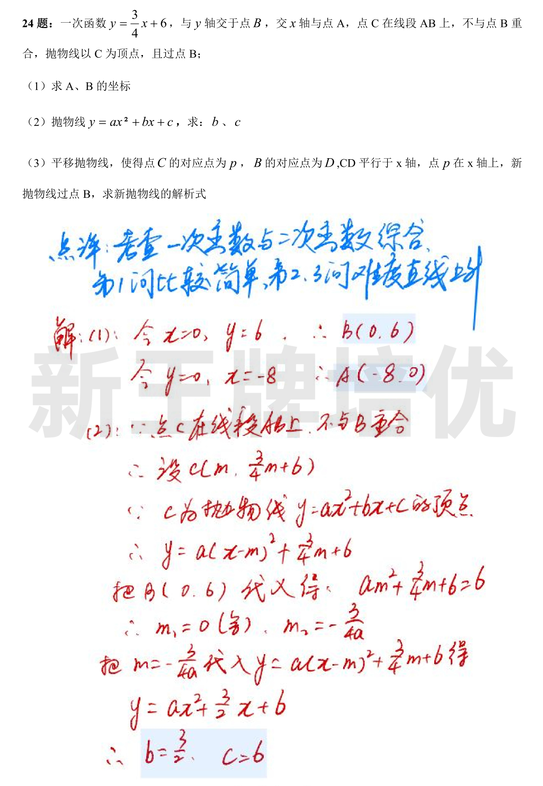 24 题：一次函数 y = 3/4 x + 6，与 y 轴交于点 B，交 x 轴与点 A，点 C 在线段 AB 上，不与点 B 重
合，抛物线以 C 为顶点，且过点 B；
（1）求 A、B 的坐标
（2）抛物线 y = ax² + bx + c，求：b 、c
（3）平移抛物线，使得点 C 的对应点为 p，B 的对应点为 D,CD 平行于 x 轴，点 p 在 x 轴上，新
抛物线过点 B，求新抛物线的解析式
点评：考查一次函数与二次函数综合.
第1问比较简单,第2.3问难度直线上升
解:(1): 令 x=0, y=6 . ∴ B(0.6)
令 y=0, x=-8 ∴ A(-8.0)
(2): ∵ 点C在线段AB上.不与B重合
∴ 设C(m, 3/4m+6)
∵ C为抛物线 y=ax²+bx+c的顶点
∴ y=a(x-m)²+3/4m+6
把B(0.6)代入得: am²+3/4m+6=6
∴ m₁=0(舍), m₂=-3/4a
把 m=-3/4a代入y=a(x-m)²+3/4m+6得
y=ax²+3/2x+6
∴ b=3/2. c=6
新王牌培优